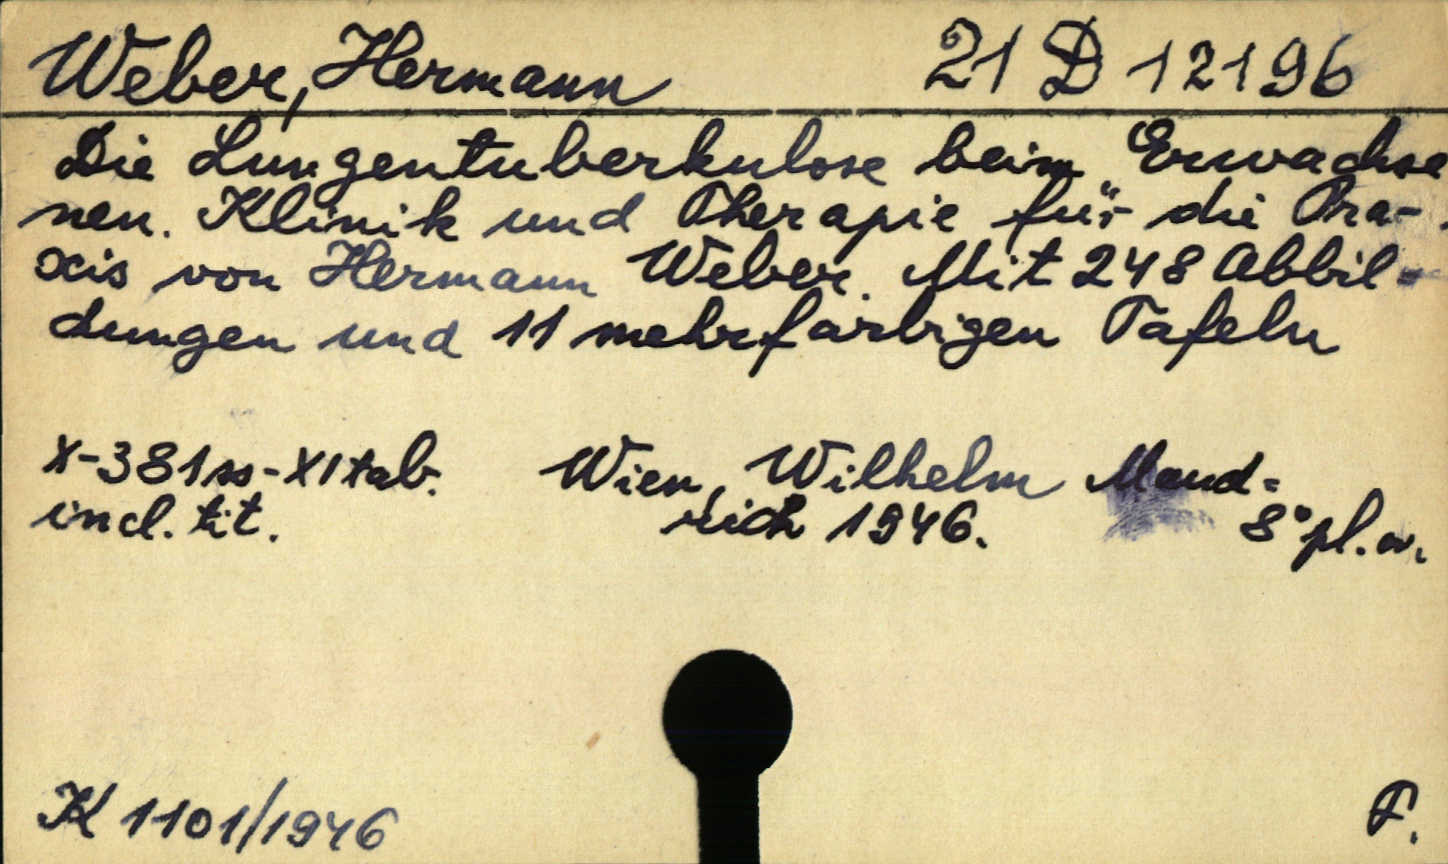 Weber, Hermann 21 D 12196
Die Lungentuberkulose beim Erwachse
nen. Klinik und Therapie für die Pra-
xis von Hermann Weber. Mit 248 Abbil-
dungen und 11 mehrfarbigen Tafeln
X-381ss-XI tab. Wien, Wilhelm Maud=
incl. tit. rich 1946. 8° pl. w.
K 1101/1946 F.